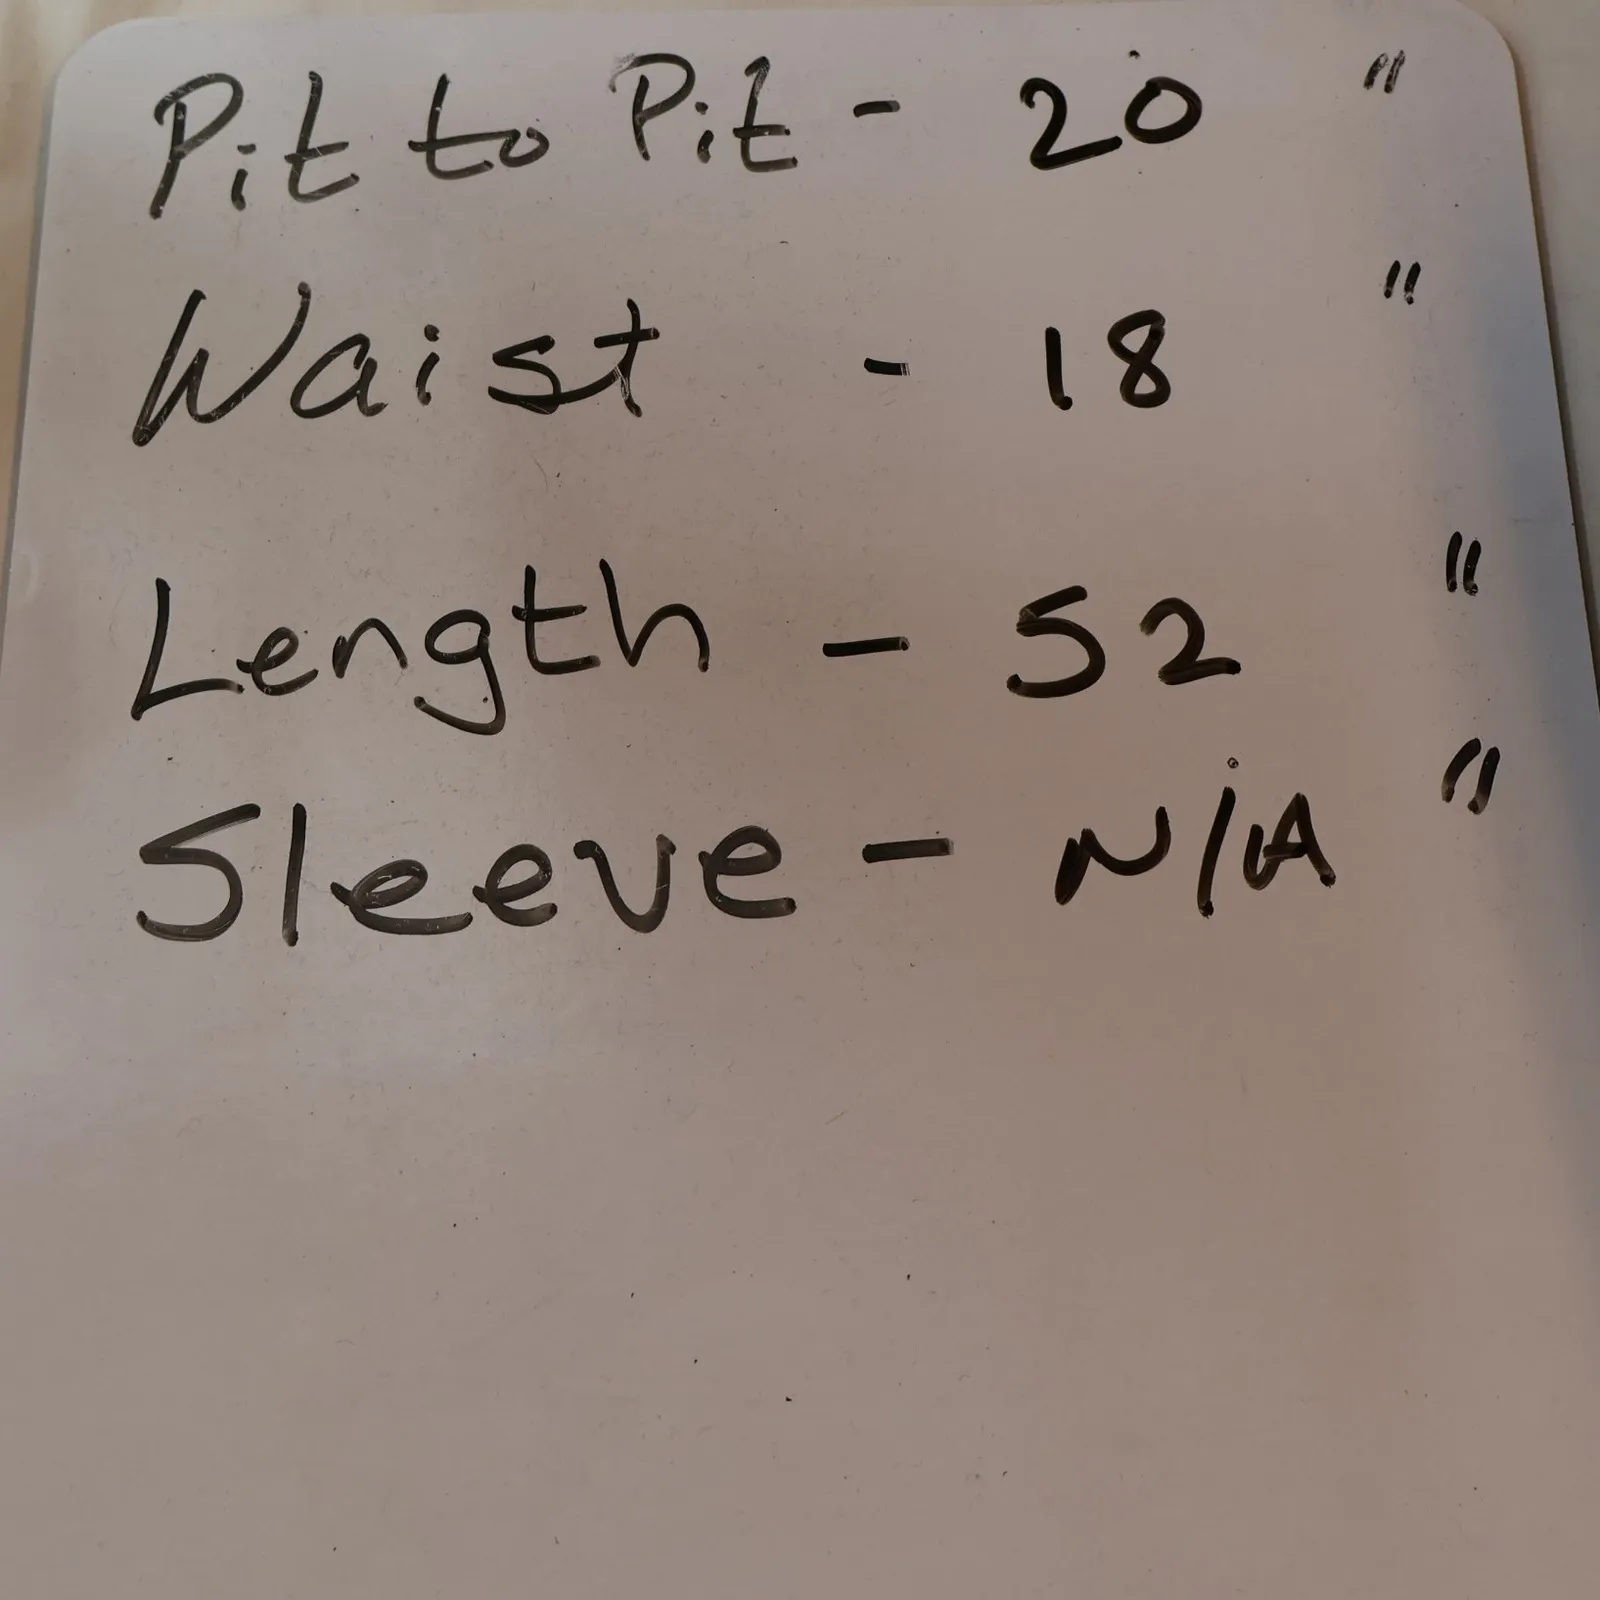 Pit to Pit - 20 "
Waist - 18 "
Length - 52 "
Sleeve - N/A "